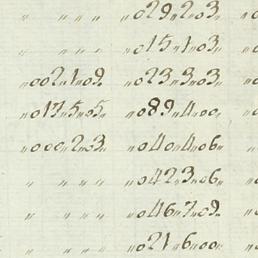 " " " " "029"2"3
" " " " "015"1"03
"002"1"09 "023"3"03
"017"5"05 "089"4"00
"000"2"03 "040"4"06
" " " " "042"3"06
" " " " "046"7"09
" " " " "021"6"00